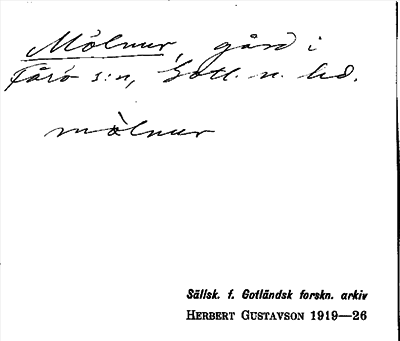 Mölnur, gård i
Fårö s:n, Gotl. n. hd.
mòlnur
Sällsk. f. Gotländsk forskn. arkiv
HERBERT GUSTAVSON 1919—26